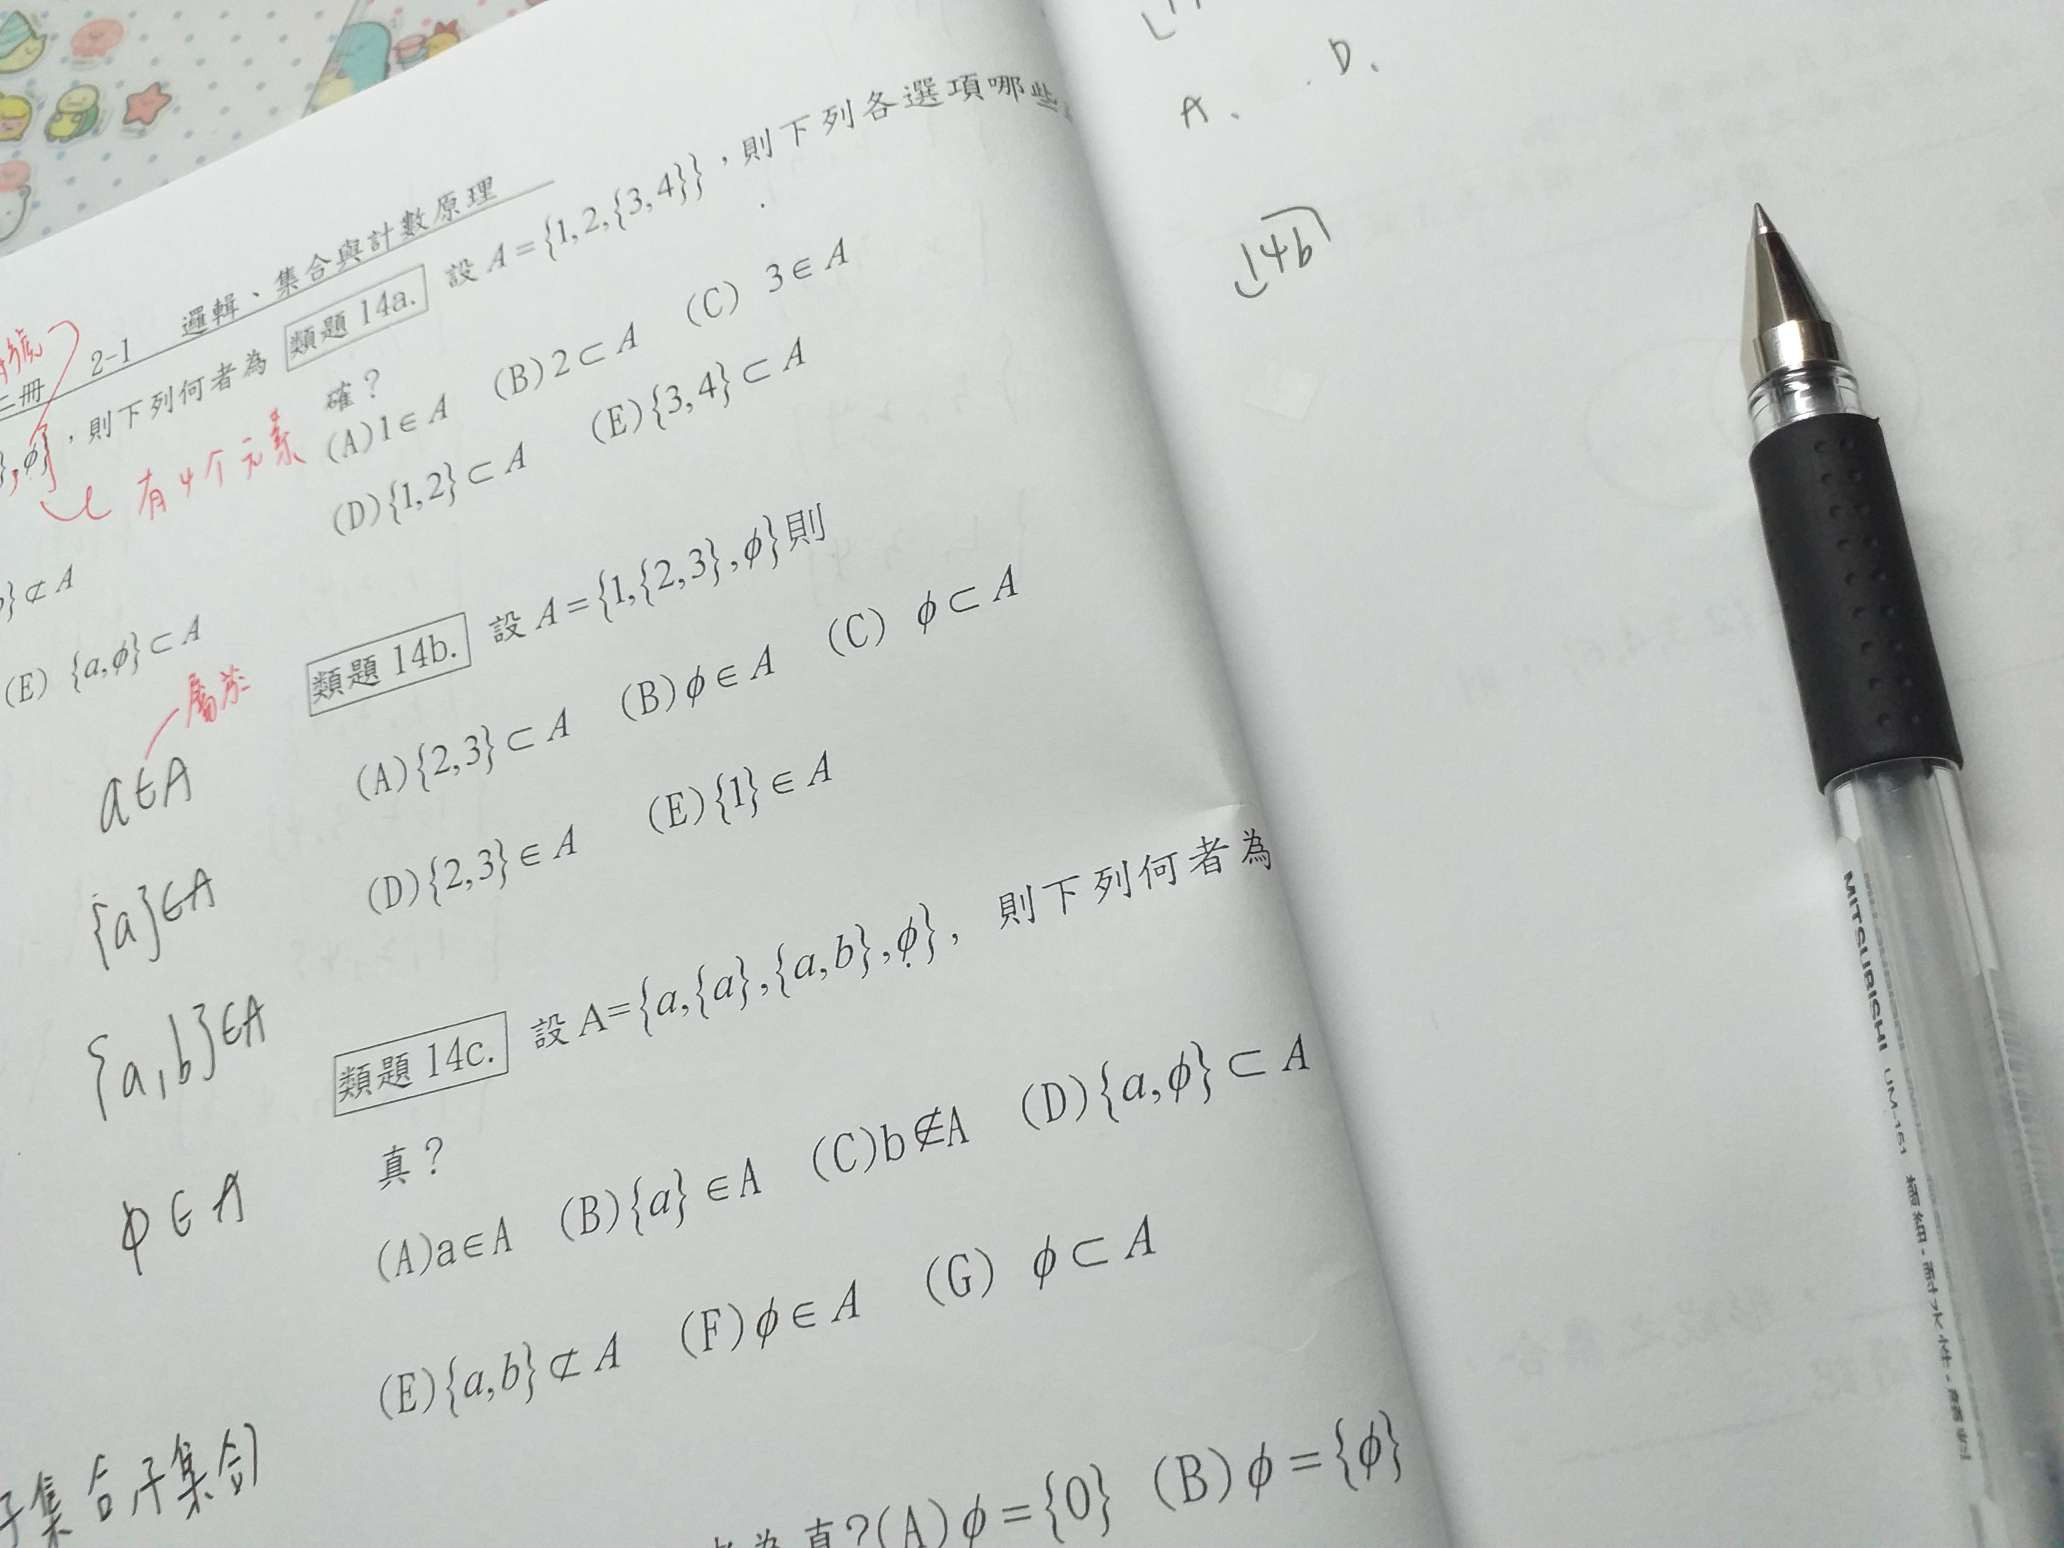 2-1 邏輯、集合與計數原理
,ϕ},則下列何者為
有4个元素
} ⊄ A
(E) {a,ϕ} ⊂ A
屬於
a∈A
{a}∈A
{a,b}∈A
ϕ∈A
子集合,子集合
類題 14a. 設 A = {1, 2, {3, 4}},則下列各選項哪些
確?
(A)1∈A (B)2⊂A (C) 3∈A
(D){1,2}⊂A (E){3,4}⊂A
類題 14b. 設 A = {1,{2,3},ϕ}則
(A){2,3}⊂A (B)ϕ∈A (C) ϕ⊂A
(D){2,3}∈A (E){1}∈A
類題 14c. 設 A={a,{a},{a,b},ϕ}, 則下列何者為
真?
(A)a∈A (B){a}∈A (C)b∉A (D){a,ϕ}⊂A
(E){a,b}⊄A (F)ϕ∈A (G) ϕ⊂A
為真?(A)ϕ={0} (B)ϕ={ϕ}
A、 D、
14b
MITSUBISHI UM-151